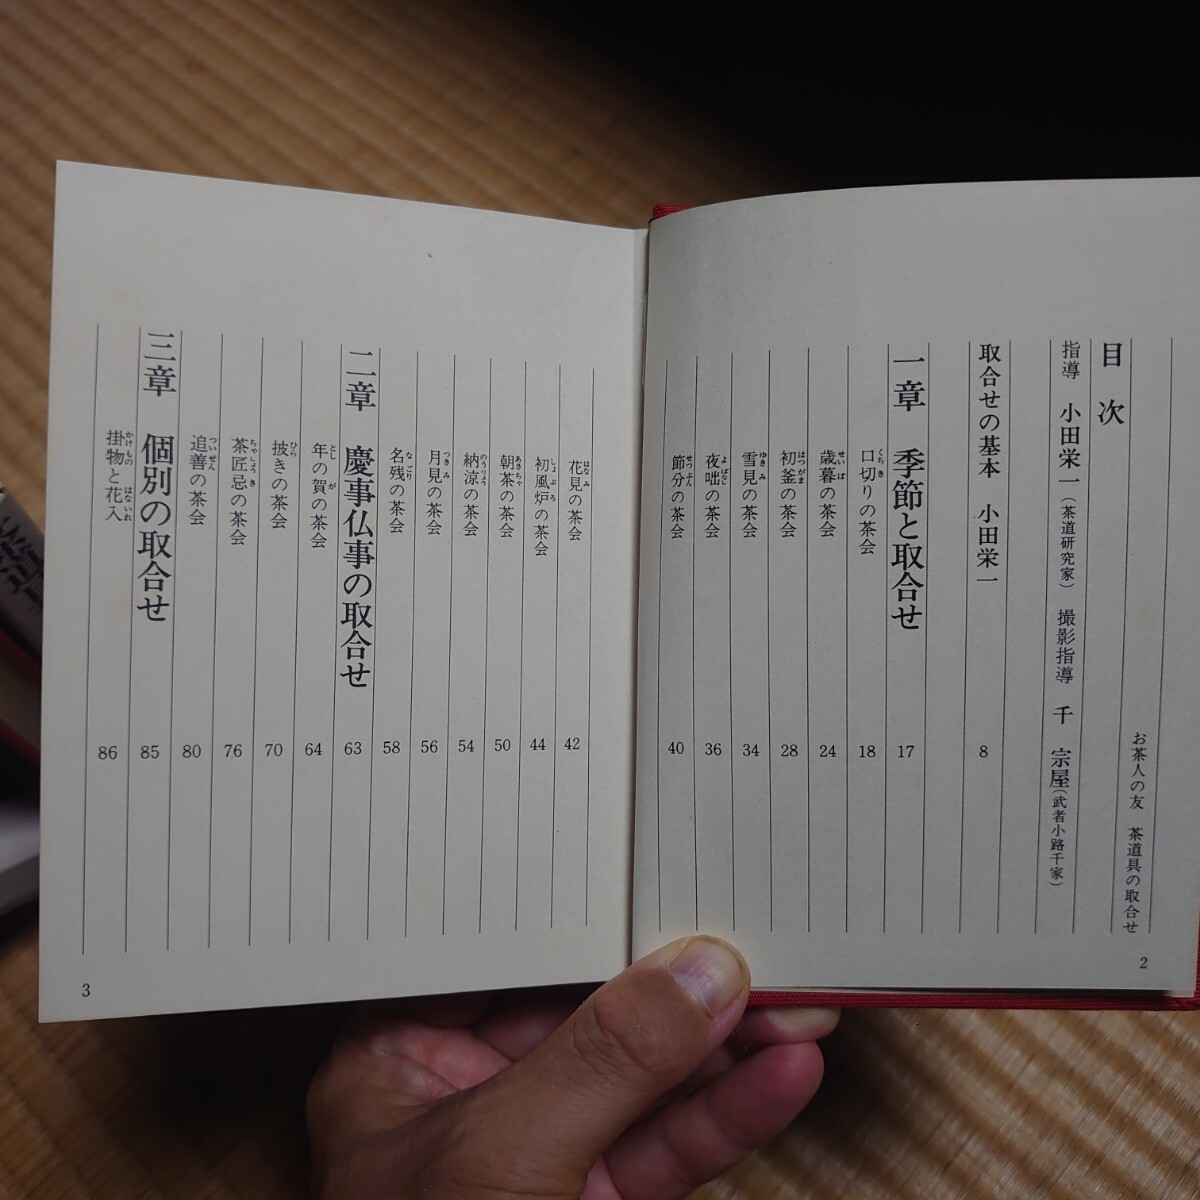 目次
お茶人の友　茶道具の取合せ
指導　小田栄一（茶道研究家）　撮影指導　千　宗屋（武者小路千家）
取合せの基本　小田栄一　8
一章　季節と取合せ　17
口切りの茶会　18
歳暮の茶会　24
初釜の茶会　28
雪見の茶会　34
夜咄の茶会　36
節分の茶会　40
2
花見の茶会　42
初風炉の茶会　44
朝茶の茶会　50
納涼の茶会　54
月見の茶会　56
名残の茶会　58
二章　慶事仏事の取合せ　63
年の賀の茶会　64
披きの茶会　70
茶匠忌の茶会　76
追善の茶会　80
三章　個別の取合せ　85
掛物と花入　86
3